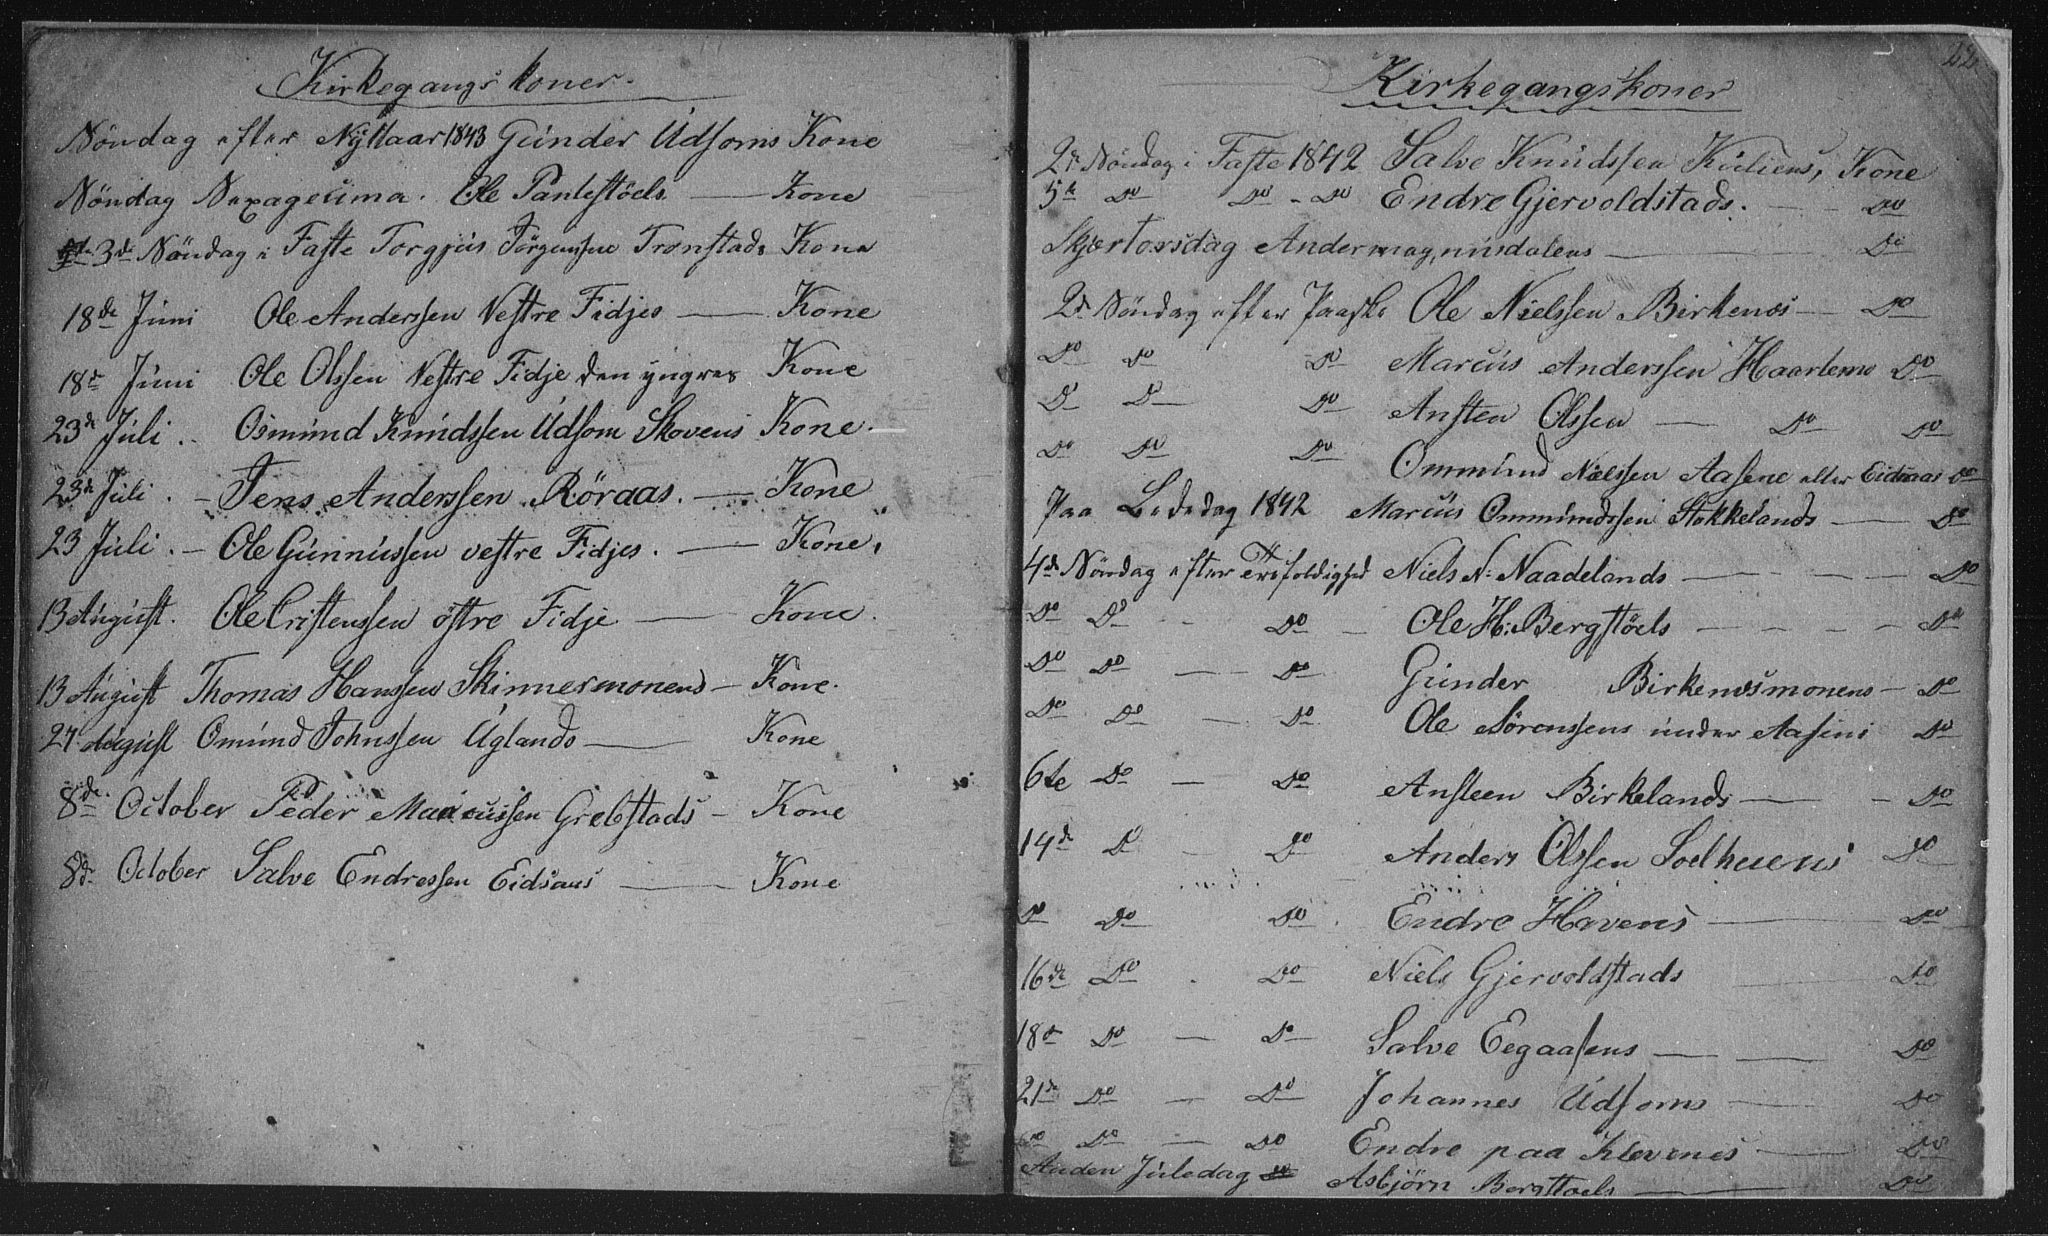 Kirkegangskoner.
Søndag efter Nÿttaar 1843 Gúnder Údsoms Kone
Søndag Sexagesima. Ole Pantestöels — Kone
3de Søndag i Faste Torgjús Jörgensen Tronstads Kone
18de Júni Ole Anderssen Vestre Fidjes — Kone
18de Júni Ole Olssen Vestre Fidje den yngres Kone
23de Júli .- Osmúnd Knúdssen Údsom Skovens Kone.
23de Júli . - Jens Anderssen Röraas. — Kone
23 Júli . - Ole Gúnnússen vestre Fidjes. — Kone.
13 Aúgúst. Ole Cristenssen östre Fidje — Kone.
13 Aúgúst Thomas Hanssen Skinnermonens — Kone.
27 Aúgúst Omúnd Johnssen Úglands — Kone
8de October Peder Marcussen Grebstads — Kone
8de October Salve Endressen Eidsaas — Kone
22
Kirkegangskoner
2de Søndag i Faste 1842 Salve Knúdssen Kúliens, Kone
5te Do Do - Do Endre Gjervoldstads. — Do
Skjærtorsdag Andermagnusdalens — Do
2de Søndag efter Paaske Ole Nielssen Birkenæs — Do
Do Do Do Marcús Anderssen Haartemo Do
Do Do Do Ansten Olssen — Do Do
Do Do Do Ommúnd Nielssen Aasene eller Eidsaas Do
Paa Bededag 1842 Marcús Ommúndssen Stokkelands — Do
4de Søndag efter Trefoldighed Niels N: Naadelands — Do
Do Do - Do - Ole H: Bergstöels - - - - Do
Do Do — Do Gúnder Birkenæsmonens — Do
Do Do — Do Ole Sörenssens únder Aasene Do
6te Do — Do Ansteen Birkelands — - Do
14de Do - Do Anders Olssen Do
Do Do Do. Endre Havens — Do
16de Do . Do Niels Gjervoldstads Do
18de Do — Do Salve Eegaasens — — Do
21de Do — Do Johannes Údsoms — Do
Do Do — Do Endre paa Klevenes — Do
Anden Júledag Asbjörn Bergstoels — Do